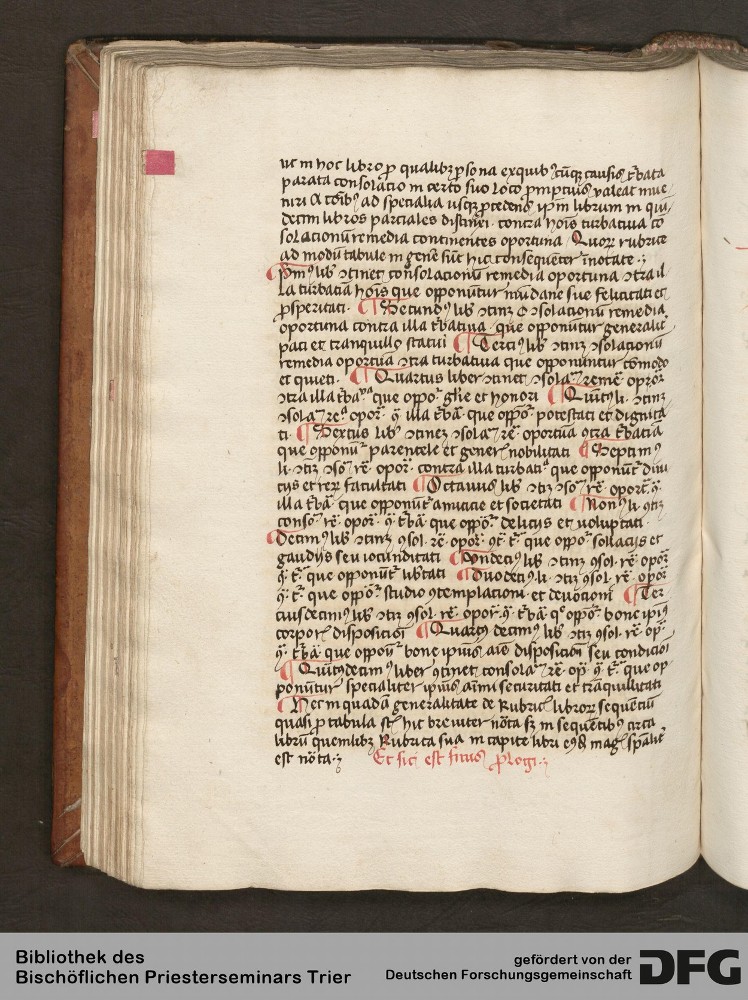 ut in hoc libro ꝓ qualibꝫ ꝑsona ex quibꝰcūqꝫ causis t̄bata
parata consolacio in certo suo loco ꝓmpciꝰ valeat inue
niri & cōibꝰ ad specialia vsqꝫ ꝓcedens ip̄m librum in quī
decim libros parciales distīxi. contra hoīs turbatiua cō
solacionū remedia continentes oportuna Quoꝝ rubrice
ad modū tabule in gene sūt hic consequēter īnotate
Pmꝰ lib ꝯtinet consolacionū remedia oportuna ꝯtra il
la turbatiua hoīs que opponūtur mūdane sue felicitati et
ꝓsperitati. Secundꝰ lib ꝯtinꝫ ꝯsolacionū remedia
oportuna contra illa t̄batiua que opponūtur generalit̄
paci et tranquillo statui Terciꝰ lib ꝯtinꝫ ꝯsolacionū
remedia oportūa ꝯtra turbatiua que opponuntur cōmodo
et quieti. Quartus liber ꝯtinet ꝯsola. remē oproꝝ
ꝯtra illa t̄baᵘᵃ que oppoʳ glīe et honori Quītꝰ li. ꝯtinꝫ
ꝯsolaʳ reᵃ opor. ꝯ̄ illa t̄bā. que oppōʳ potestati et dignita
ti. Sextus libꝰ ꝯtinet ꝯsolaʳ rē oportūa ꝯtra t̄batiā
que opponūʳ parentele et generꝭ nobilitati Septimꝰ
li. ꝯtiꝫ ꝯsoʳ rē opoꝝ. contra illa turbatiᵃ que opponūt̄ diui
ciis et reꝝ facultati Octauus lib ꝯtiꝫ ꝯsoʳ rē oport̄. ꝯ̄
illa t̄bā. que opponūt̄ amicicie et societati Nonꝰ li. ꝯtiꝫ
consoʳ rē opor. ꝯ̄ t̄bā que oppōʳ deliciis et voluptati.
Decimꝰ lib ꝯtinꝫ ꝯsol. rē. opoꝝ. ꝯt̄ t̄ʳ que oppoʳ sollaciis et
gaudiis seu iocunditati Vndeciꝰ lib ꝯtinꝫ ꝯsol. rē opoꝝ
ꝯ̄ t̄ʳ que opponūt̄ lib̄tati Duodeciꝰ li. ꝯtiꝫ ꝯsol. rē. opoꝝ
ꝯ̄ t̄ʳ que oppōʳ studio ꝯtemplacioni et deuōcioni Ter
ciusdecimꝰ lib ꝯtiꝫ ꝯsol. rē. opor. ꝯ̄ t̄bā qᵉ oppōʳ bone ipiꝰ
corporꝭ disposicioī Quartꝰ decimꝰ lib ꝯtiꝫ ꝯsol. rē. op̄.
ꝯ̄ t̄bā. que oppoūʳ bone ipiūs aīe disposicioī seu condicioī
Quītꝰdecimꝰ liber ꝯtinet consolaʳ rē op̄ ꝯ̄ t̄ʳ que op
ponūtur specialiter ipiūs aīmi securitati et trāquillitati
Hec in quadā generalitate de Rubricꝭ libroꝝ sequenciū
quasi ꝓ tabula sūt hic breuiter nōta sꝫ in sequētibꝰ circa
librū quemlibꝫ Rubrica sua in capite libri eiꝰ magꝭ sp̄alit̄
est nōta
Et sic est finis ꝓlogi
Bibliothek des
Bischöflichen Priesterseminars Trier
gefördert von der
Deutschen Forschungsgemeinschaft
DFG